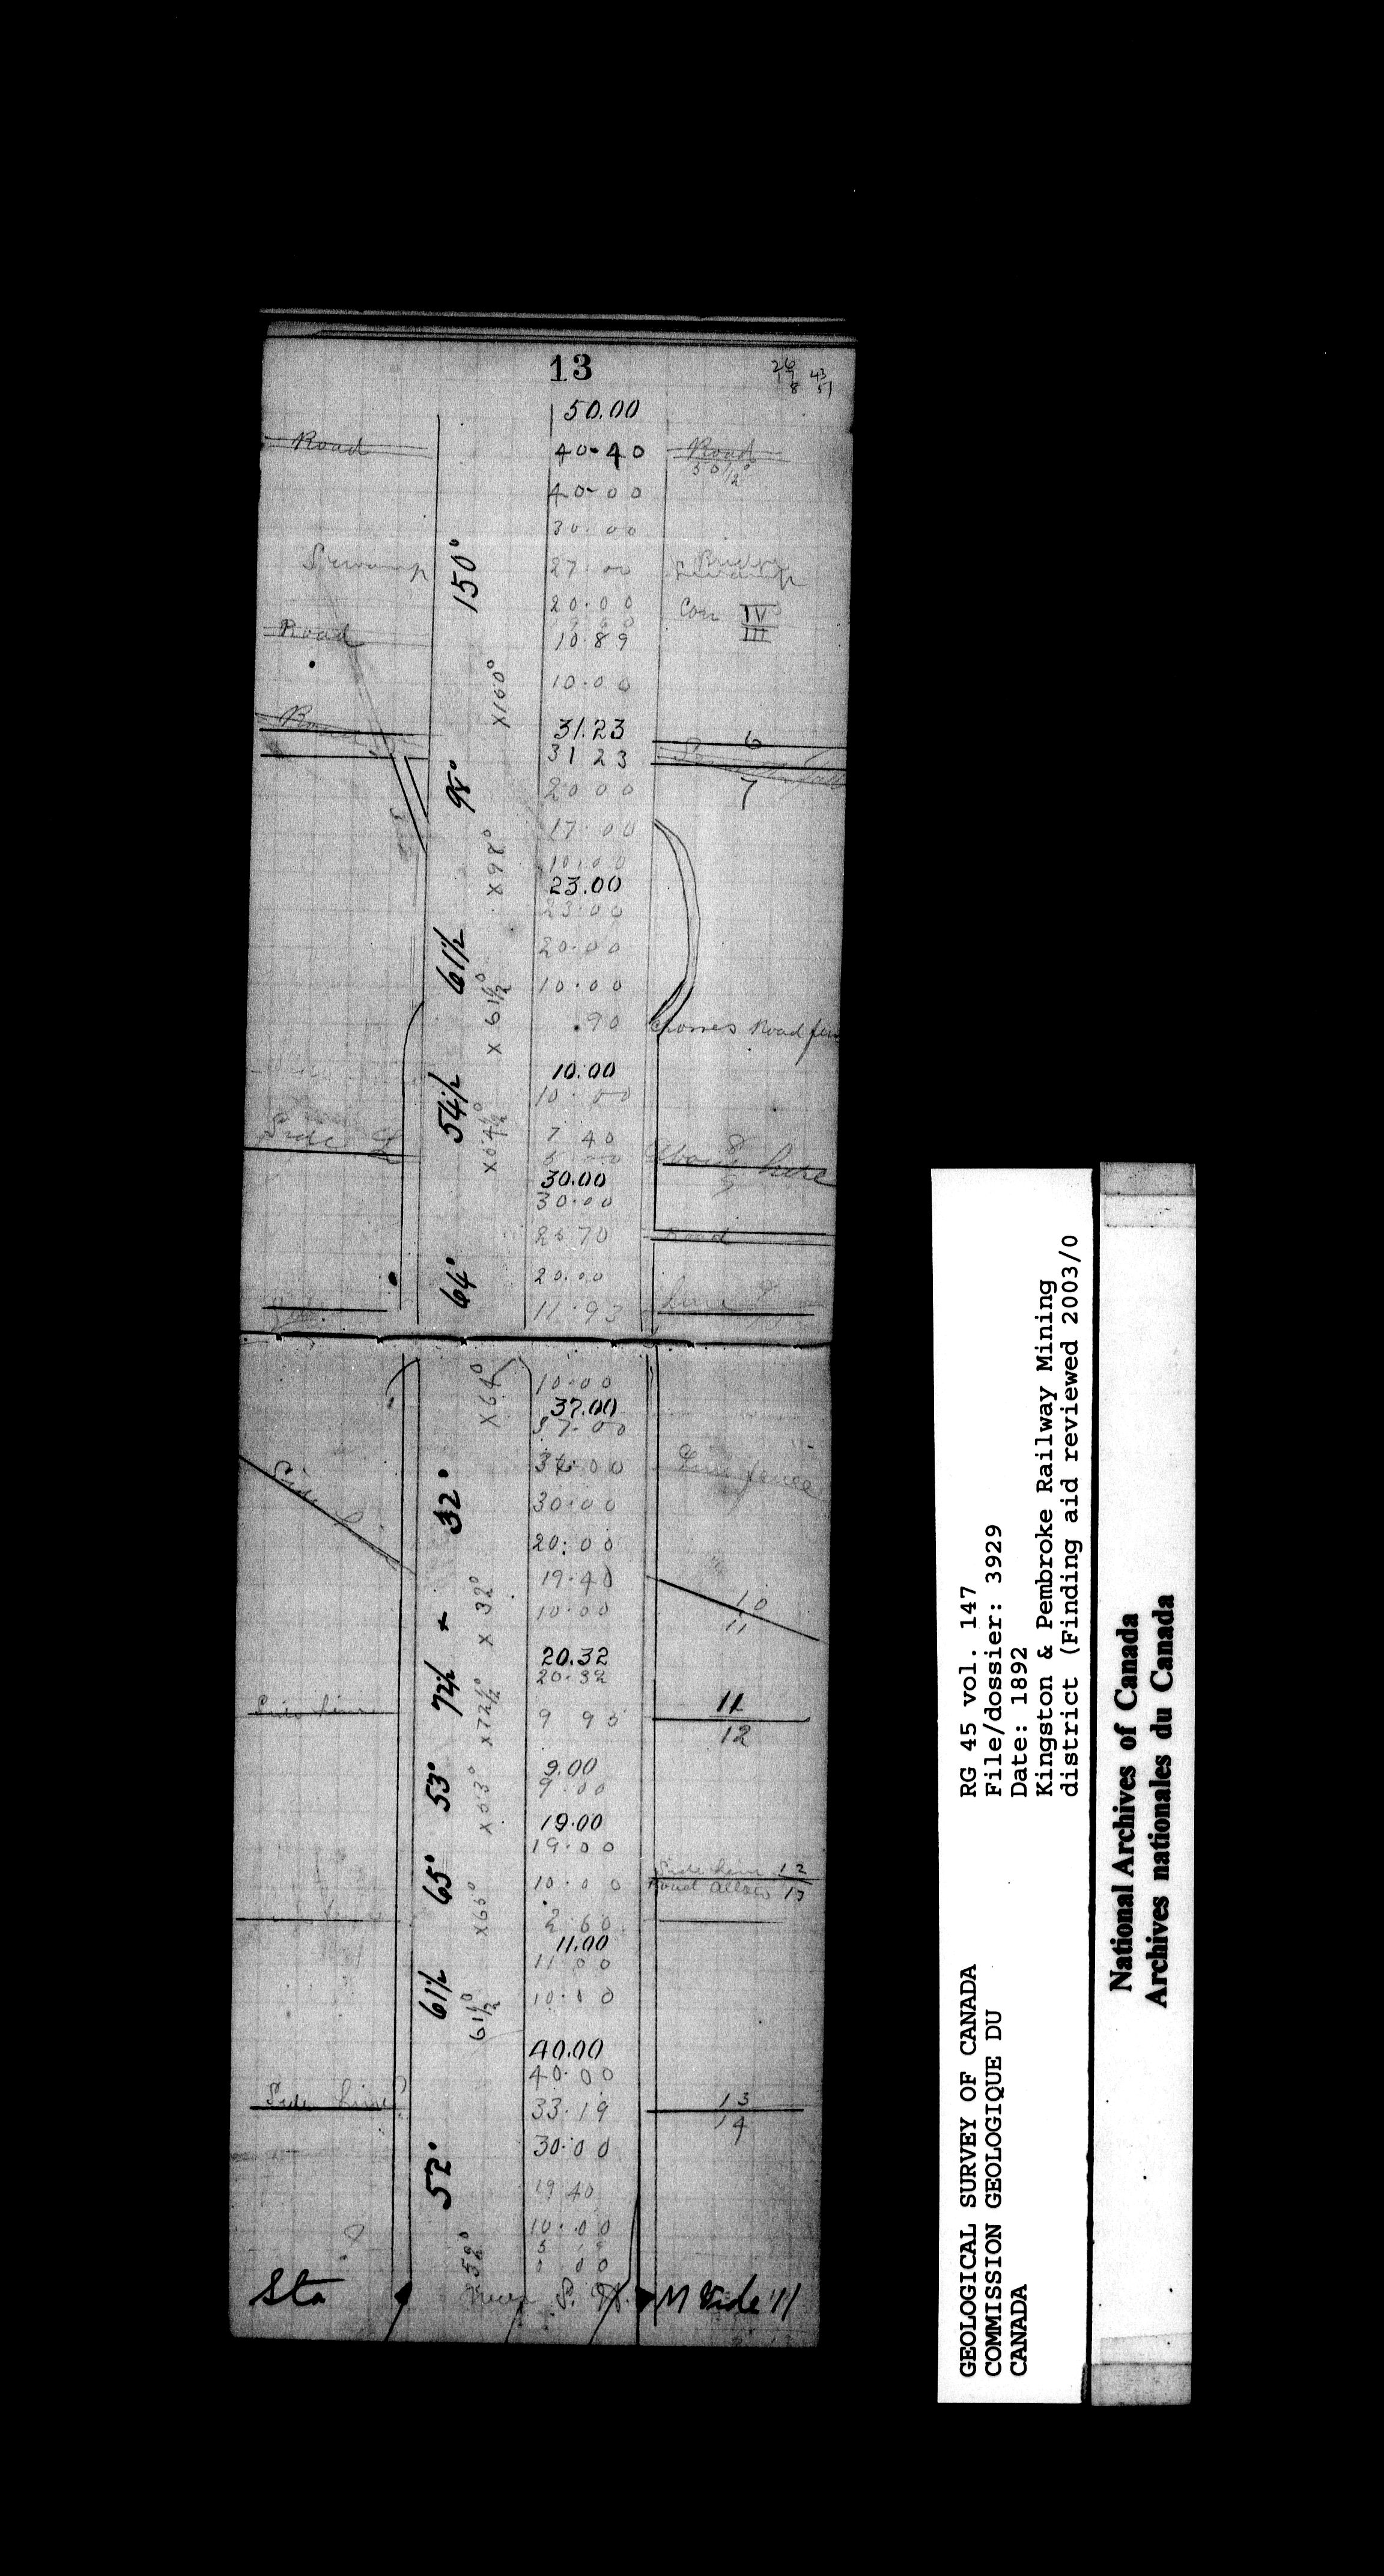 13
26 43
7
8 51
50.00
Road 40.40 Road
50 1/2°
40.00
30.00
Swamp 150° 27.00 Swamp
20.00 Con IV
III
Road 10.89
X150° 10.00
31.23
Road 31 23 6
98° 20 00 7
17.00
X98° 10.00
23.00
23.00
61 1/2 20.00
X 61 1/2° 10.00
.90 Crosses Road
10.00
54 1/2 10.00
Side 7 40 8
X54 1/2° 9
30.00
30.00
70 Road
64° 20.00
11.93 Line
X64° 10.00
37.00
37.00
32° 36.00 fence
30.00
Side 20.00
19.40
X 32° 10.00 10
11
20.32
72 1/2 20.32
Side Line X72 1/2° 9 95 11
12
53° 9.00
X53° 9.00
19.00
65° 19.00
10.00 Side Line 12
Road Allow 13
X65° 2.60
11.00
61 1/2 11.00
61 1/2° 10.00
40.00
40.00
Side Line 33.19 13
14
30.00
52° 19 40
10.00
52° 0 00
Sta
GEOLOGICAL SURVEY OF CANADA
COMMISSION GEOLOGIQUE DU
CANADA
RG 45 vol. 147
File/dossier: 3929
Date: 1892
Kingston & Pembroke Railway Mining
district (Finding aid reviewed 2003/0
National Archives of Canada
Archives nationales du Canada